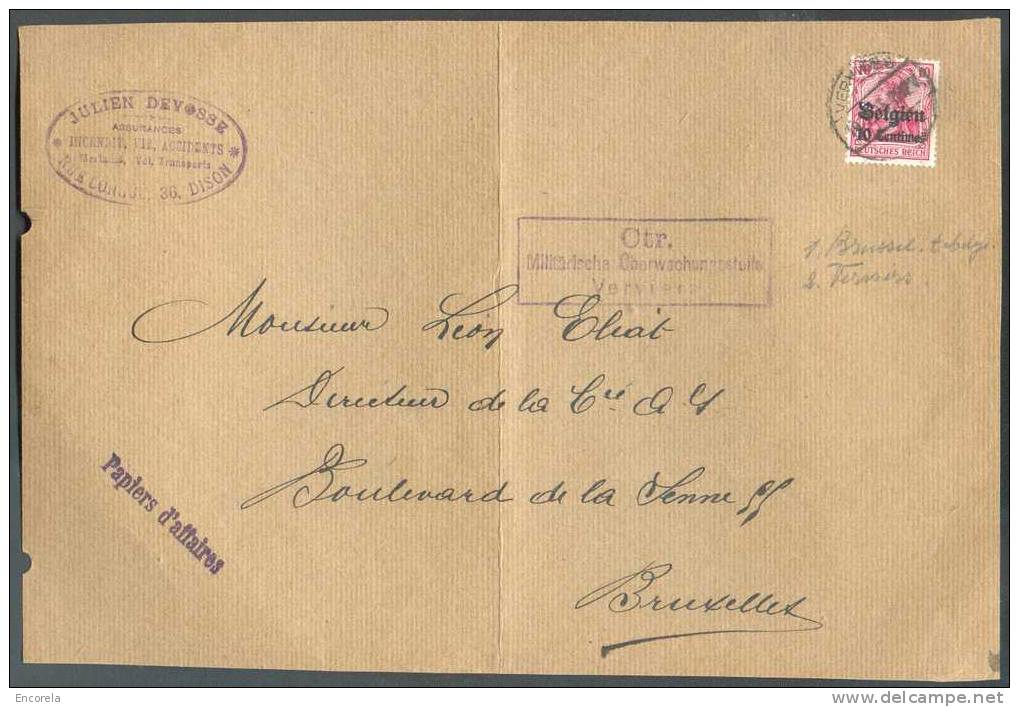 JULIEN DEVOSSE
ASSURANCES
INCENDIE, VIE, ACCIDENTS
Vol, Transports
RUE LONGUE, 36, DISON
VERVIERS
Belgien
10 Centimes
DEUTSCHES REICH
Ctr.
Militärische Überwachungsstelle
Verviers
1, Brussel.
2. Verviers
Monsieur Léon Eliat
Directeur de la Cie A G
Boulevard de la Senne 55
Bruxelles
Papiers d'affaires
Encorela
www.delcampe.net